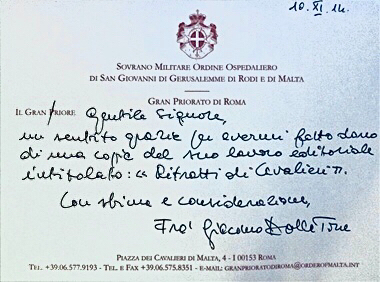 10. XI. 14.
SOVRANO MILITARE ORDINE OSPEDALIERO
DI SAN GIOVANNI DI GERUSALEMME DI RODI E DI MALTA
GRAN PRIORATO DI ROMA
IL GRAN PRIORE Gentile Signore,
un sentito grazie per avermi fatto dono
di una copia del suo lavoro editoriale
intitolato: "Ritratti di Cavalieri".
Con stima e considerazione,
Fra' Giacomo Dalla Torre
PIAZZA DEI CAVALIERI DI MALTA, 4 - I 00153 ROMA
TEL. +39.06.577.9193 - TEL. E FAX +39.06.575.8351 - E-MAIL: GRANPRIORATODIROMA@ORDEROFMALTA.INT